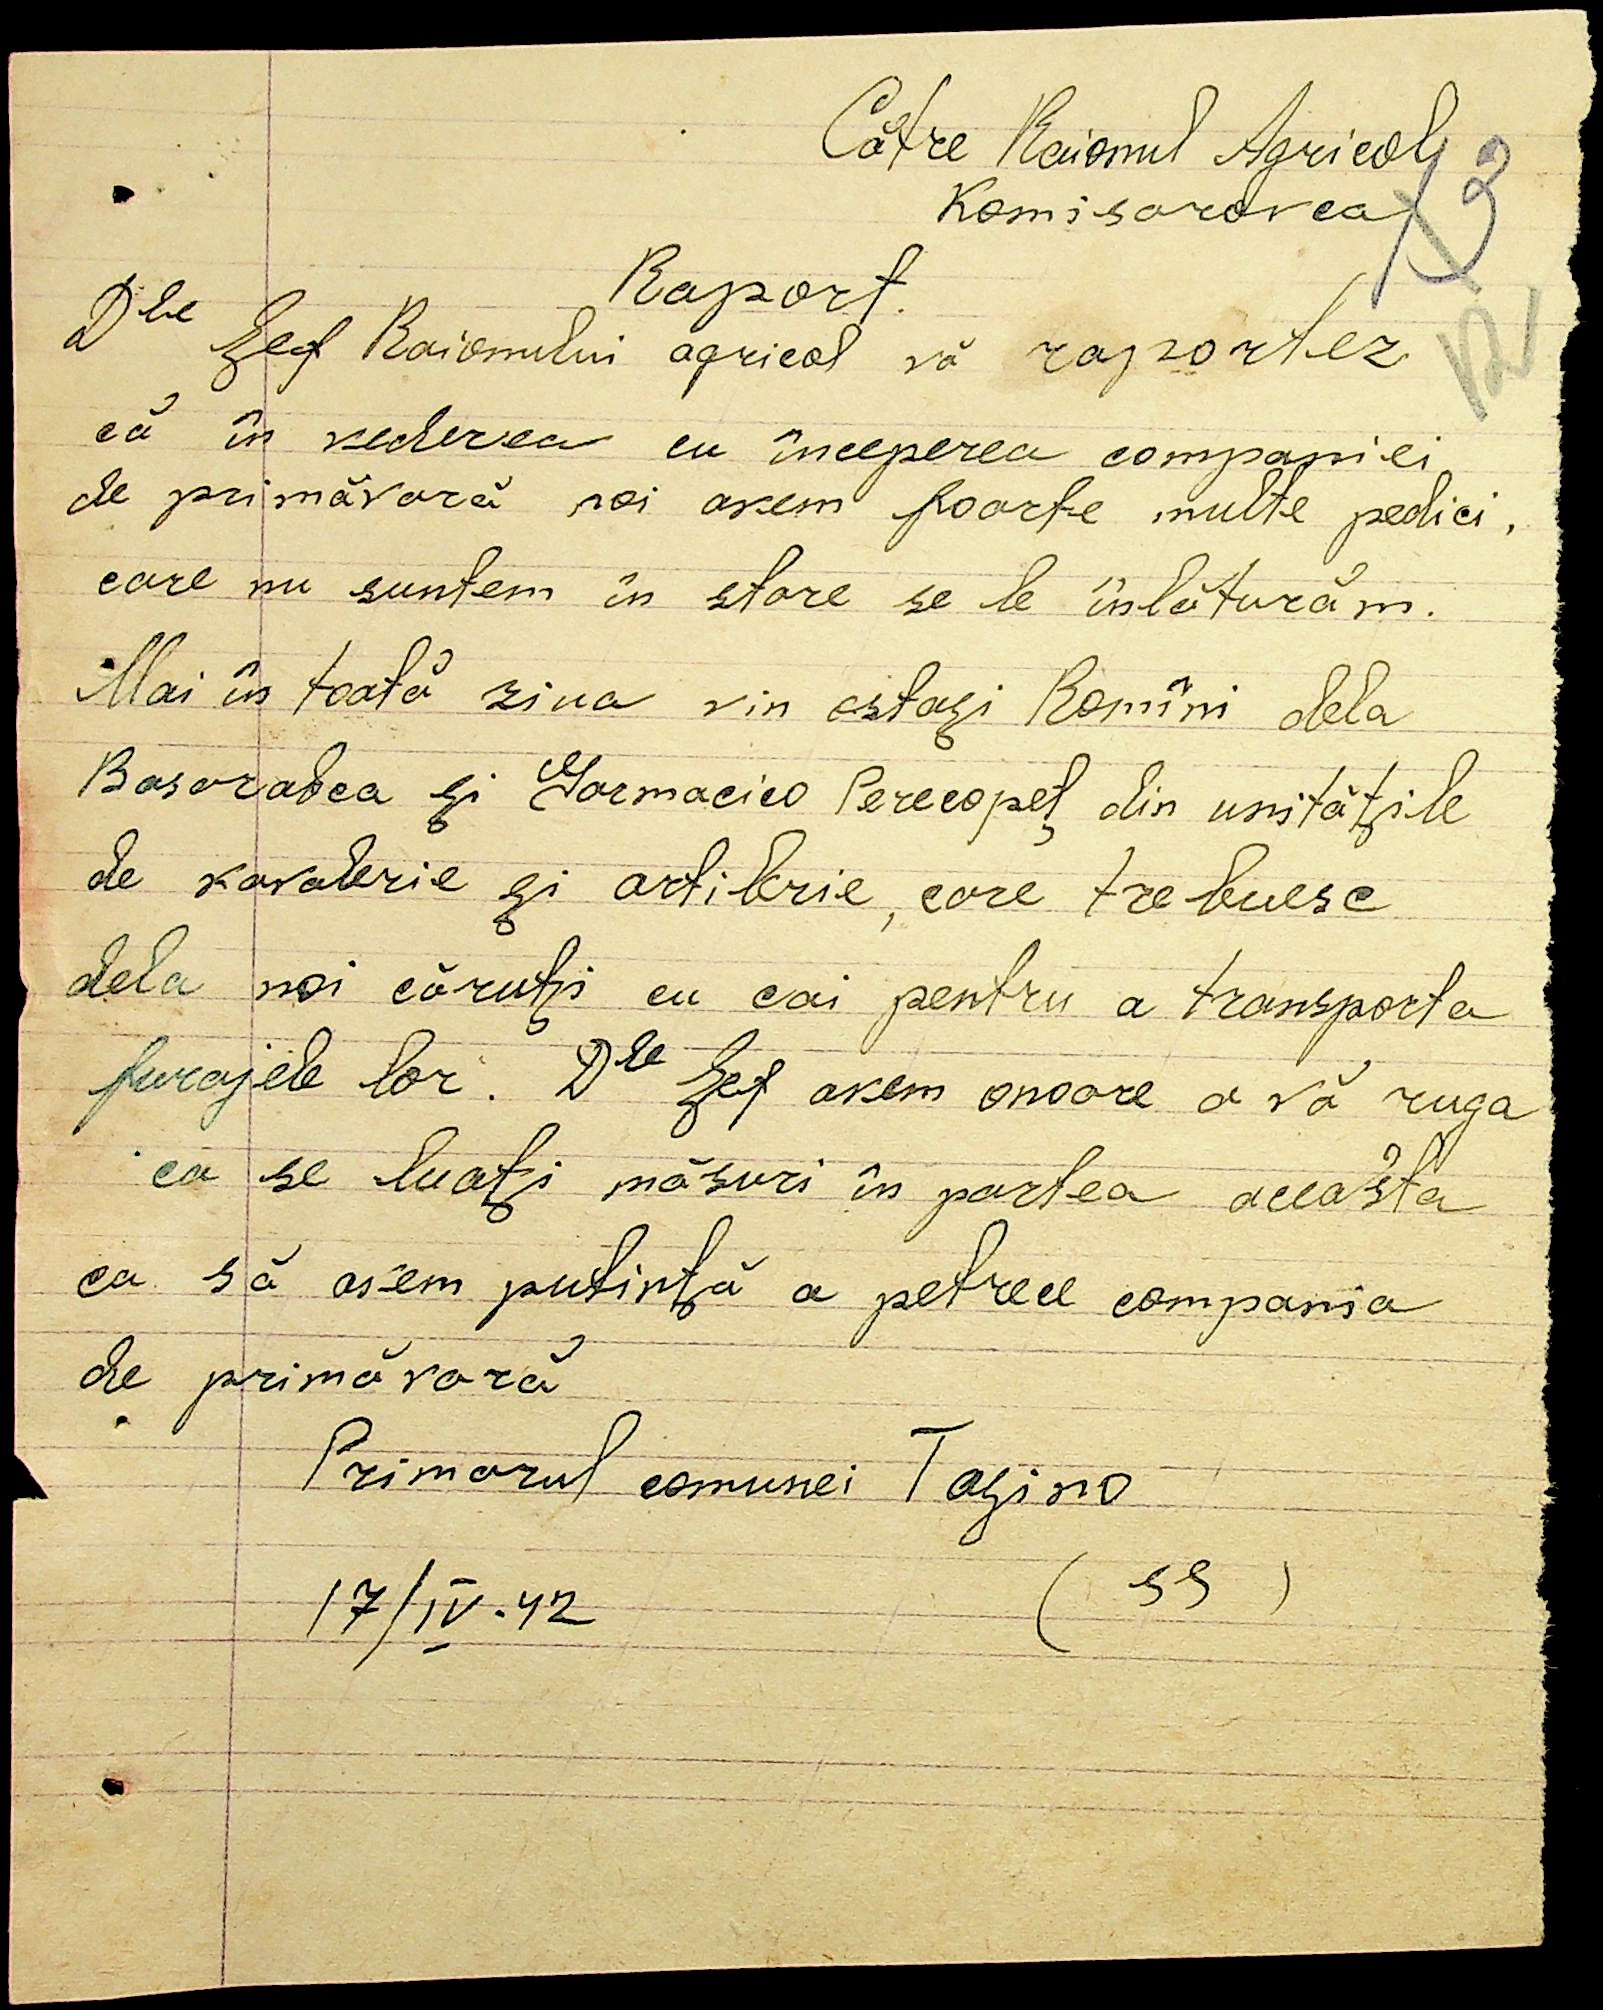 Către Raionul Agricol
Komisarovca
13
12
Raport.
Dle Șef Raionului agricol vă raportez
că în vederea cu începerea companiei
de primăvară noi avem foarte multe pedici,
care nu suntem în stare se le înlăturăm.
Mai în toată ziua vin ostași Romîni dela
Basarabca și Garmacico Perecopeț din unitățile
de kavalerie și artilerie, care trebuesc
dela noi căruți cu cai pentru a transporta
furajele lor. Dle Șef avem onoare a vă ruga
ca se luați măsuri în partea aceasta
ca să avem putință a petrece compania
de primăvară
Primarul comunei Tașino
17/IV-42
( ss )